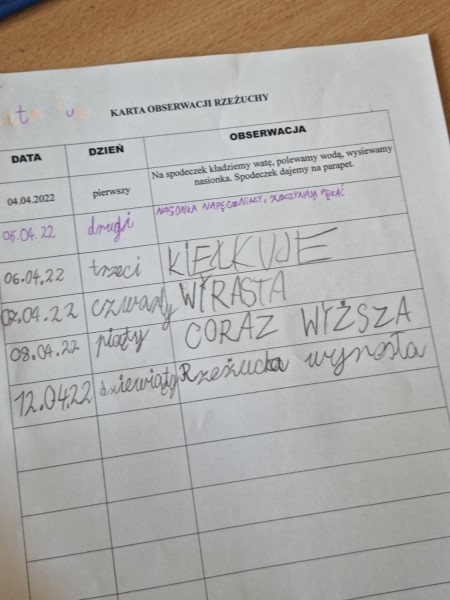 KARTA OBSERWACJI RZEŻUCHY
DATA DZIEŃ OBSERWACJA
04.04.2022 pierwszy Na spodeczek kładziemy watę, polewamy wodą, wysiewamy
nasionka. Spodeczek dajemy na parapet.
05.04.22 drugi NASIONKA NAPĘCZNIAŁY, ZACZYNAJĄ PĘKAĆ
06.04.22 trzeci KIEŁKUJE
07.04.22 czwarty WYRASTA
08.04.22 piąty CORAZ WYŻSZA
12.04.22 dziewiąty Rzeżucha wyrosła